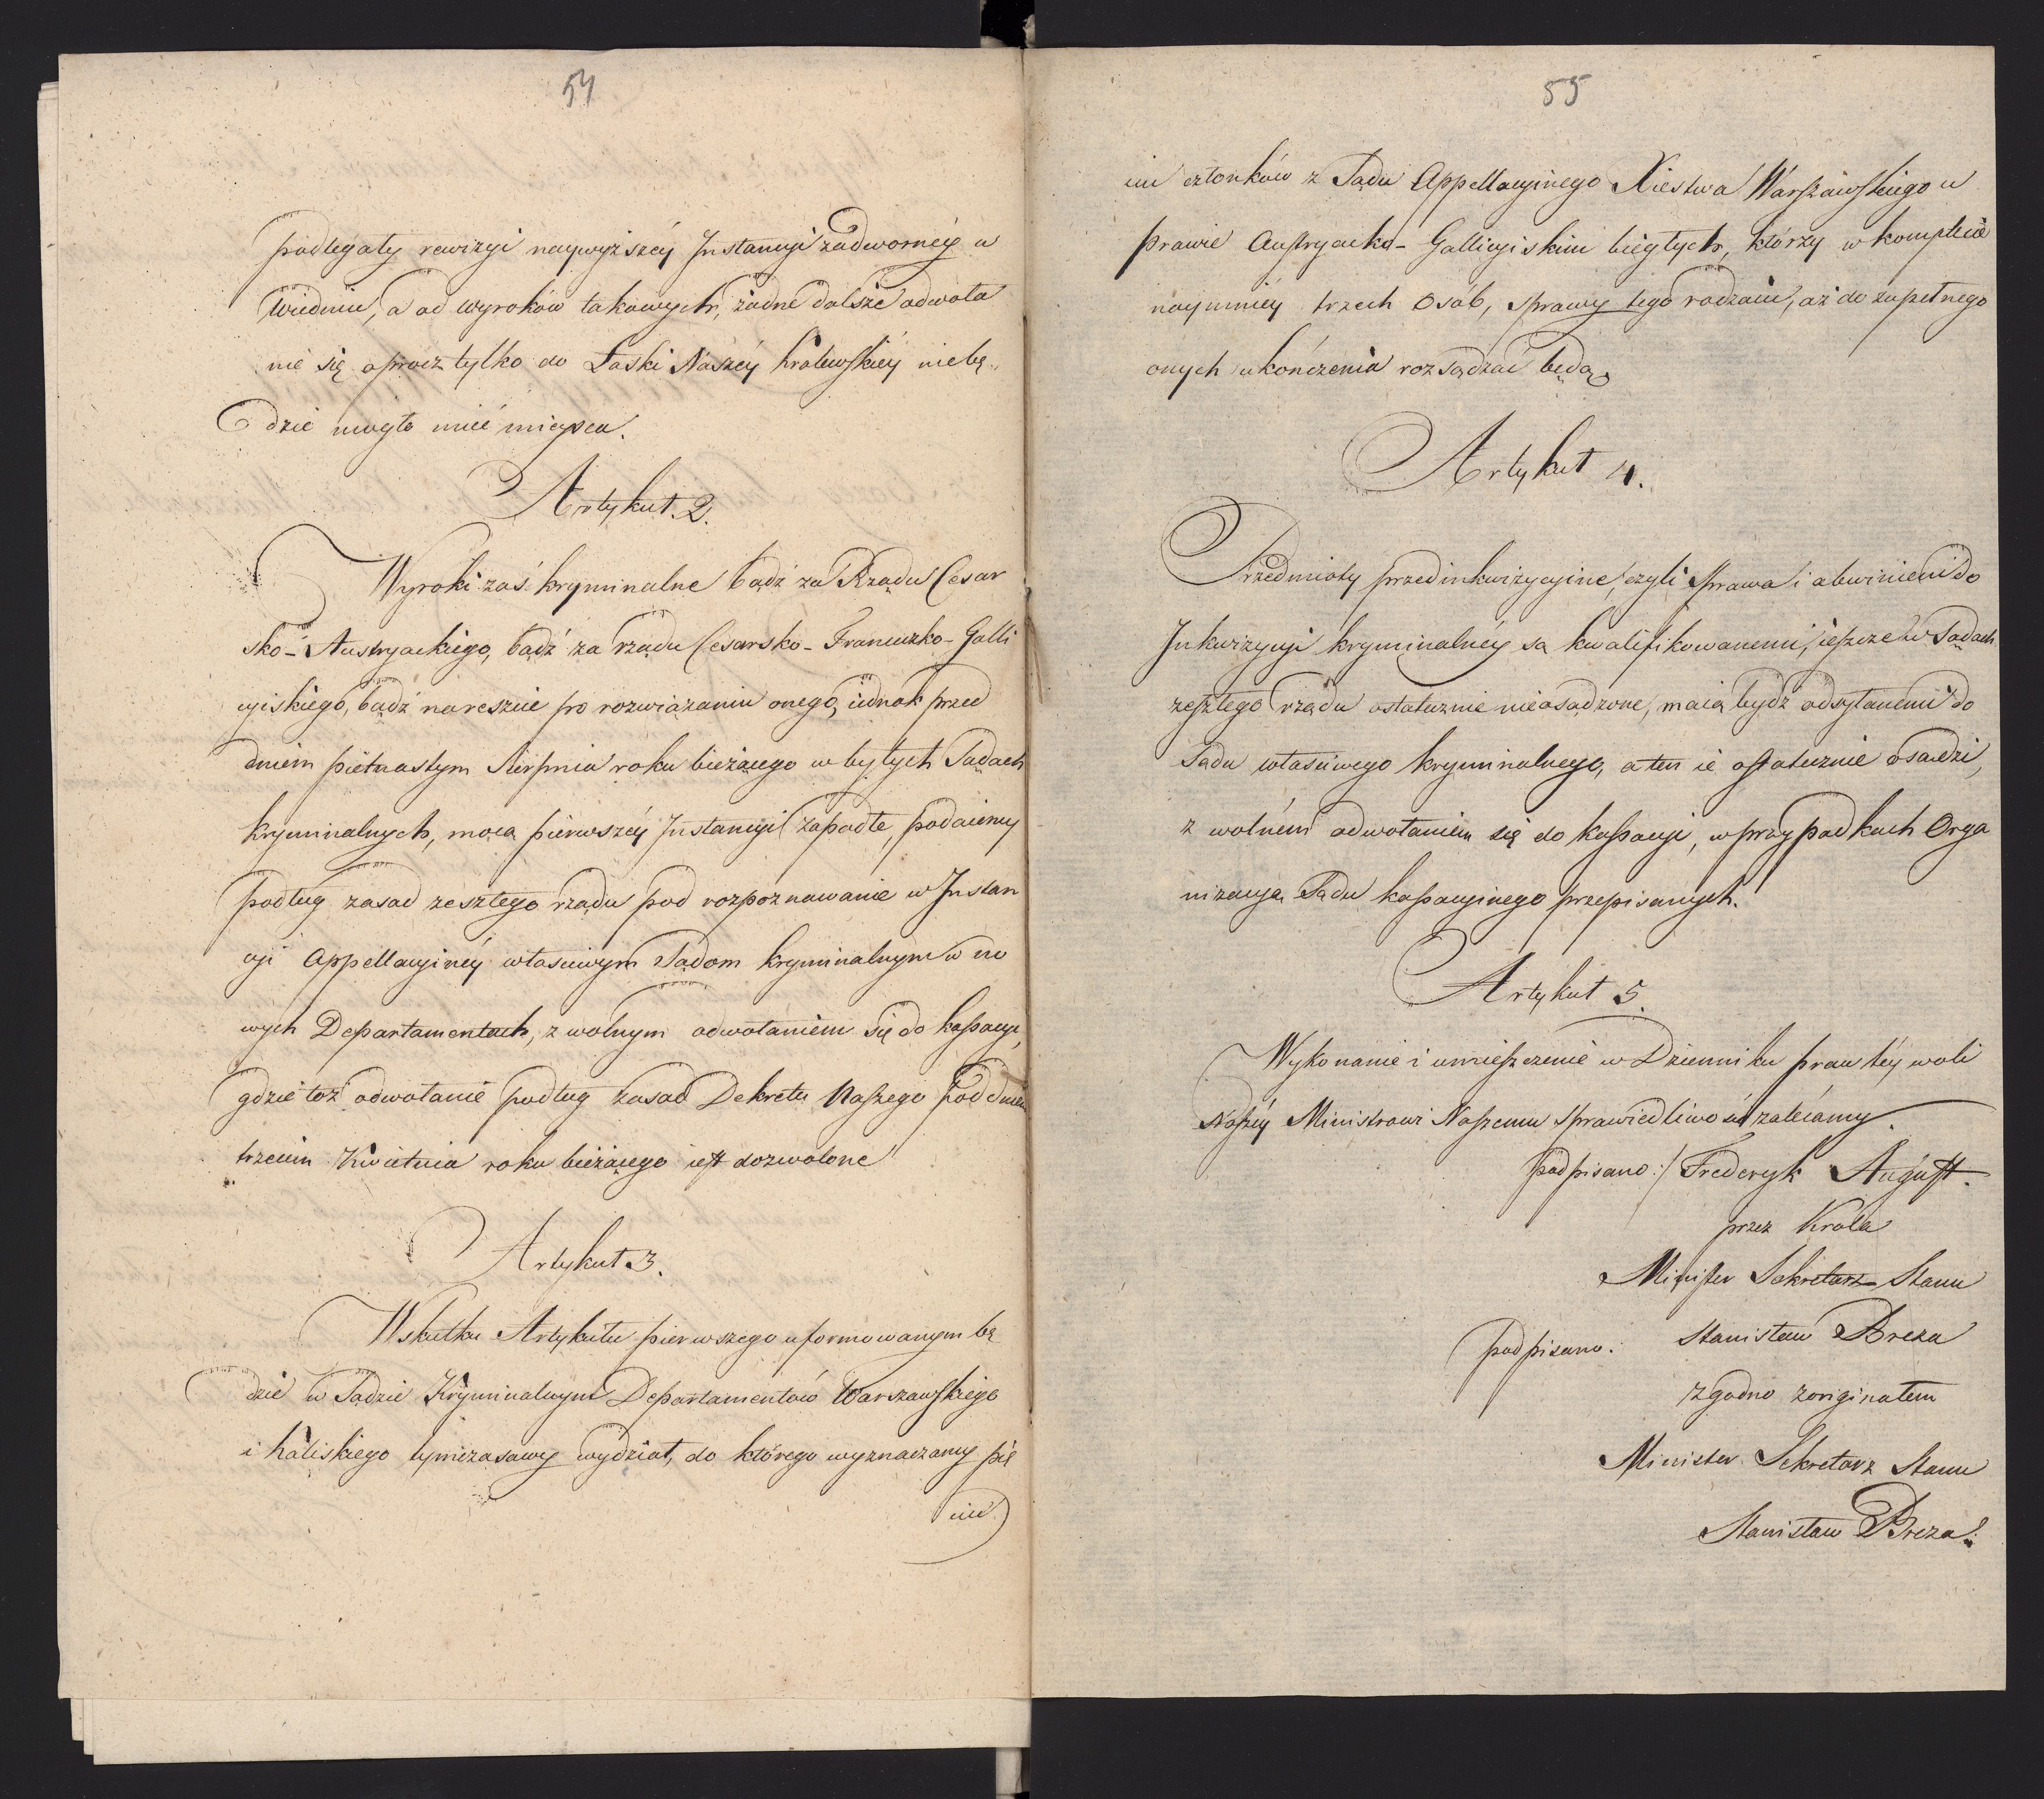 54
podlegały rewizyi naywyższéy Instancyi zadwornéy w
Wiedniu, a od wyroków takowych, żadne dalsze odwoła
nie się oprócz tylko do Łaski Naszéy Królewskiéy niebę„
dzie mogło mieć mieysca.
Artykuł. 2.
Wyroki zaś kryminalne bądź za Rządu Cesar
sko-Austryackiego, bądź za rządu Cesarsko-Francuzko-Galli
cyiskiego, bądź nareszcie po rozwiązaniu onego, iednak przed
dniem piętnastym Sierpnia roku bieżącego w byłych Sądach
kryminalnych, mocą pierwszéy Instancyi zapadłe, podaiemy
podług zasad zeszłego rządu pod rozpoznawanie w Instan
cyi Appellacyinéy właściwym Sądom kryminalnym w no
wych Departamentach, z wolnym odwołaniem się do kassacyi,
gdzie toż odwołanie podług zasad Dekretu Naszego pod dniem
trzecim Kwietnia roku bieżącego iest dozwolone
Artykuł 3.
W skutku Artykułu pierwszego uformowanym bę
dzie w Sądzie Kryminalnym Departamentów Warszawskiego
i Kaliskiego tymczasowy wydział, do którego wyznaczamy pię
ciu
55
ciu członków z Sądu Appellacyinego Xiestwa Warszawskiego w
prawie Austryacko-Gallicyiskim biegłych, którzy w komplecie
naymniéy trzech Osób, sprawy tego rodzaiu, aż do zupełnego
onych ukończenia rozsądzać będą.
Artykuł 4.
Przedmioty przedinkwizycyine, czyli Sprawa i obwinieni do
Inkwizycyi kryminalnéy są kwalifikowanemi, ieszcze w Sądach
zeszłego rządu ostatecznie nieosądzone, maią bydź odsyłanemi do
Sądu właściwego kryminalnego, a ten ie ostatecznie osądzi,
z wolném odwołaniem się do kassacyi, w przypadkach Orga
nizacyą Sądu kassacyinego przepisanych.
Artykuł 5.
Wykonanie i umieszczenie w Dzienniku praw téy woli
Naszéy Ministrowi Naszemu Sprawiedliwości zalecamy.
podpisano:/ Frederyk August.
przez Króla
Minister Sekretarz Stanu
podpisano. Stanisław Breza
zgodno z originałem
Minister Sekretarz Stanu
Stanisław Breza.